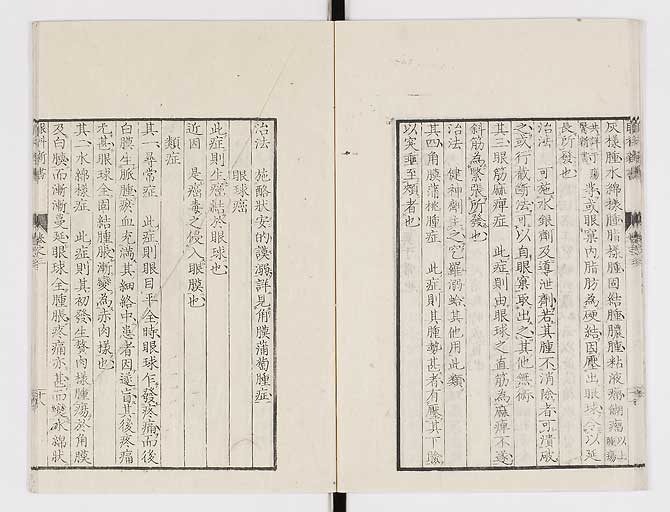 灰樣腫水綿樣腫脂樣腫固結腫膿腫粘液瘤餬瘤以上腫瘍
可瘍者或眼窠內脂肪為硬結因壓出眼球令以延
長所發也
治法 可施水銀劑及導泄劑若其腫不消除者可潰或
之或行截斷法可以自眼窠取出之其他無術
其三眼筋麻痺症 此症則由眼球之直筋為麻痺不遂
斜筋為緊張所發也
治法 健神劑主之 其他用此類
其四角膜蒲桃腫症 此症則其腫勢甚者有壓其下瞼
以突垂至頰者也
治法 施酪狀安的謨溺詳見角膜蒲萄腫症
眼球癌
此症則生癌結於眼球也
近因 是癌毒之侵入眼膜也
類症
其一尋常症 此症則眼目平全時眼球乍發疼痛而後
白膜生脈腫瘀血充滿其細絡中患者因遂盲其後疼痛
尤甚眼球全固結腫脹漸變為赤肉樣也
其二水綿樣症 此症則其初發生贅肉樣腫瘍於角膜
及白膜而漸漸蔓延眼球全腫脹疼痛亦甚而變水綿狀
眼科新書 卷之三